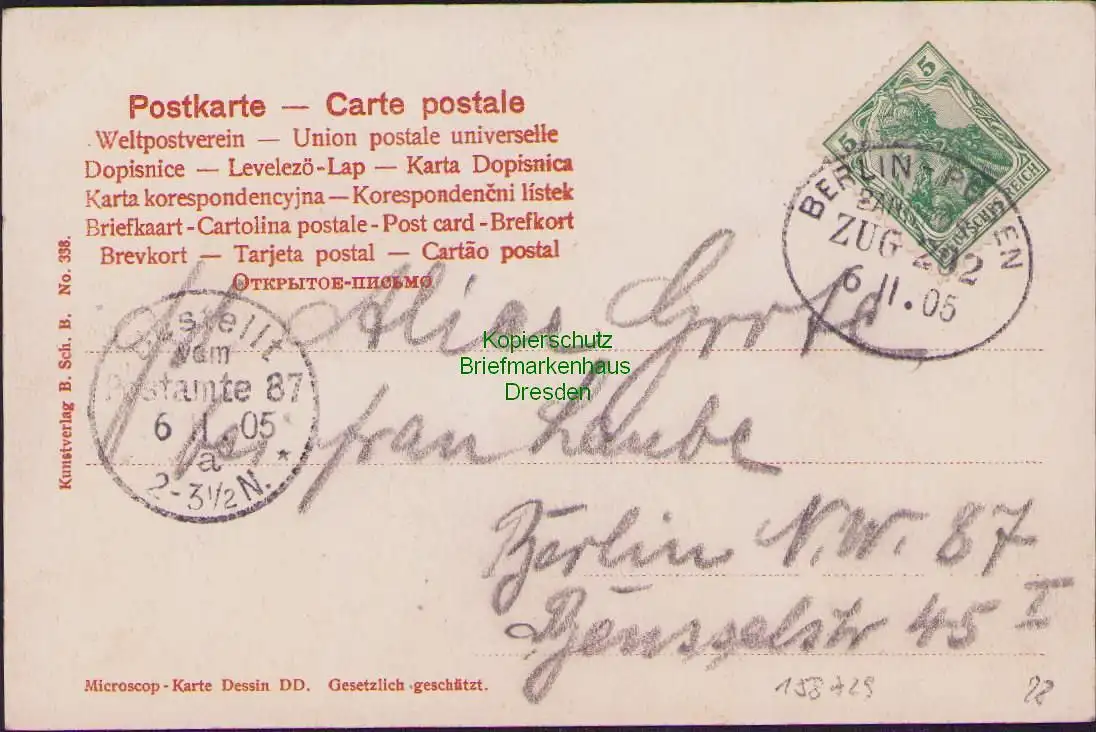 Postkarte — Carte postale
Weltpostverein — Union postale universelle
Dopisnice — Levelező-Lap — Karta Dopisnica
Karta korespondencyjna — Korespondenčni listek
Briefkaart - Cartolina postale - Post card - Brefkort
Brevkort — Tarjeta postal — Cartão postal
Открытое-письмо
5
5
DEUTSCHES REICH
BERLIN - POSEN
BAHNPOST
ZUG 202
6 II. 05
Kunstverlag B. Sch. B. No. 338.
Bestellt
vom
Postamte 87
6 II. 05
a *
2-3½N.
Frl. Alice
bei Frau Laube
Berlin N.W. 87
Beusselstr 45 I
Kopierschutz
Briefmarkenhaus
Dresden
Microscop-Karte Dessin DD. Gesetzlich geschützt.
158729